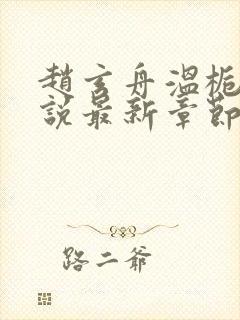 趙玄舟溫梔
說最新章節
路二爺